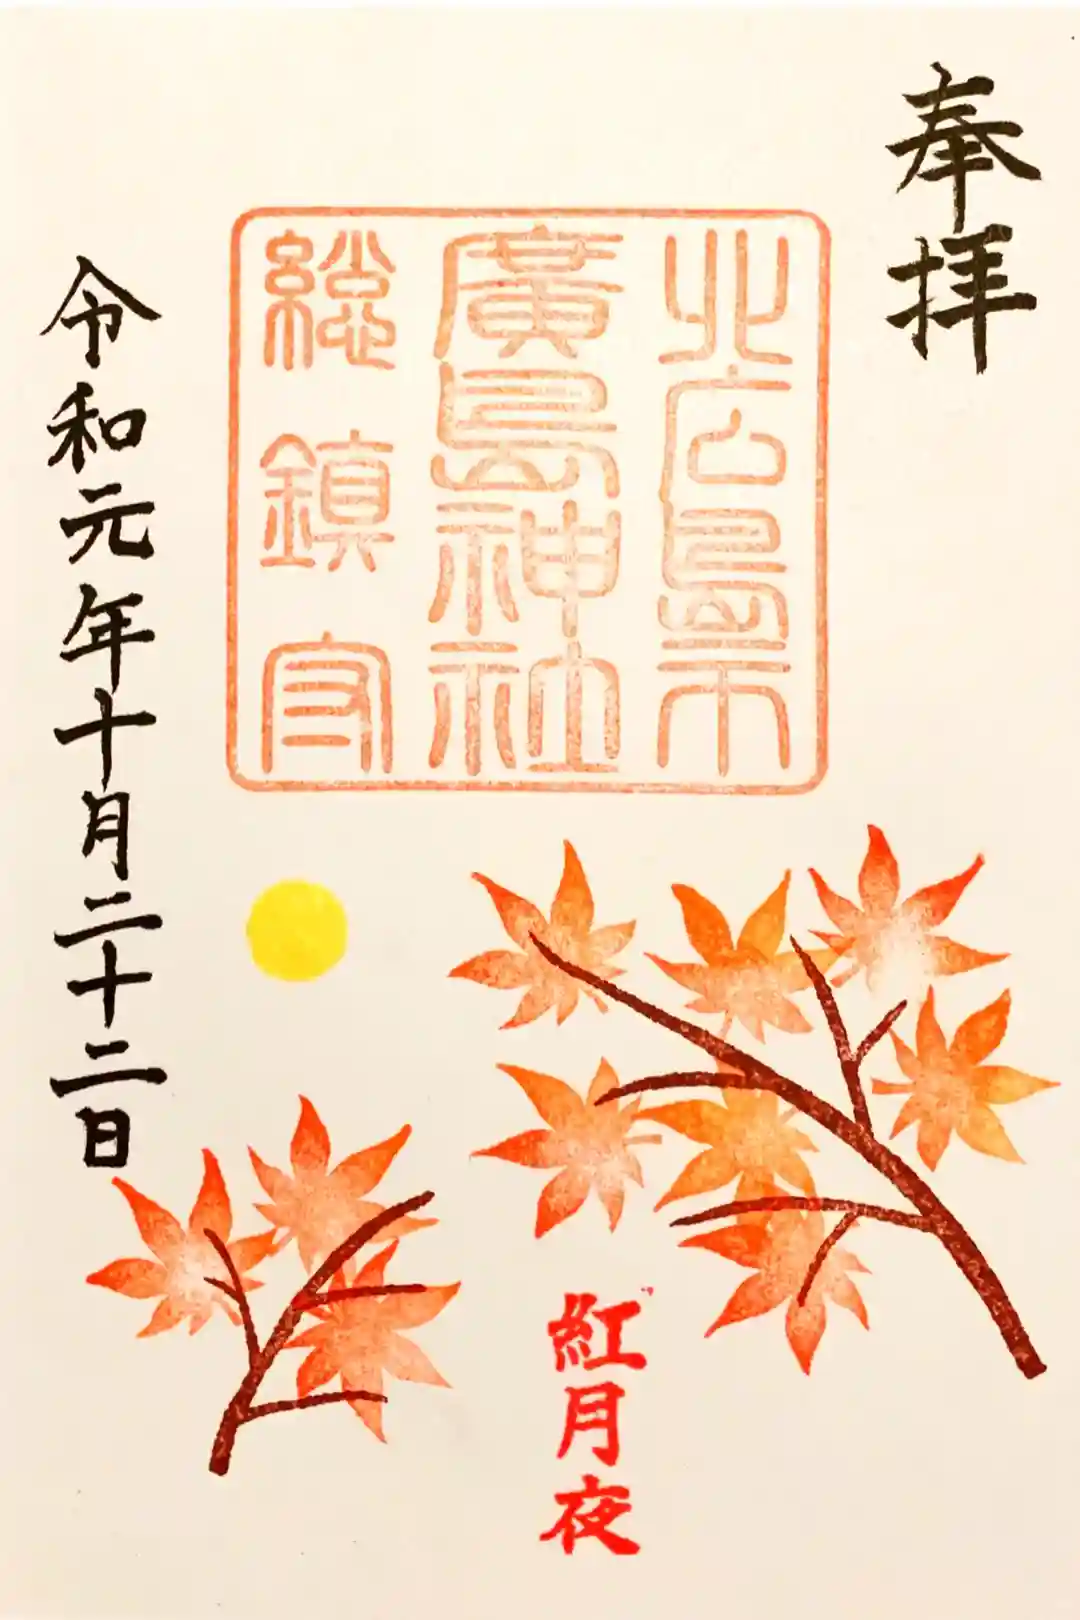 奉拝
北広島市
廣島神社
総鎮守
令和元年十月二十二日
紅月夜